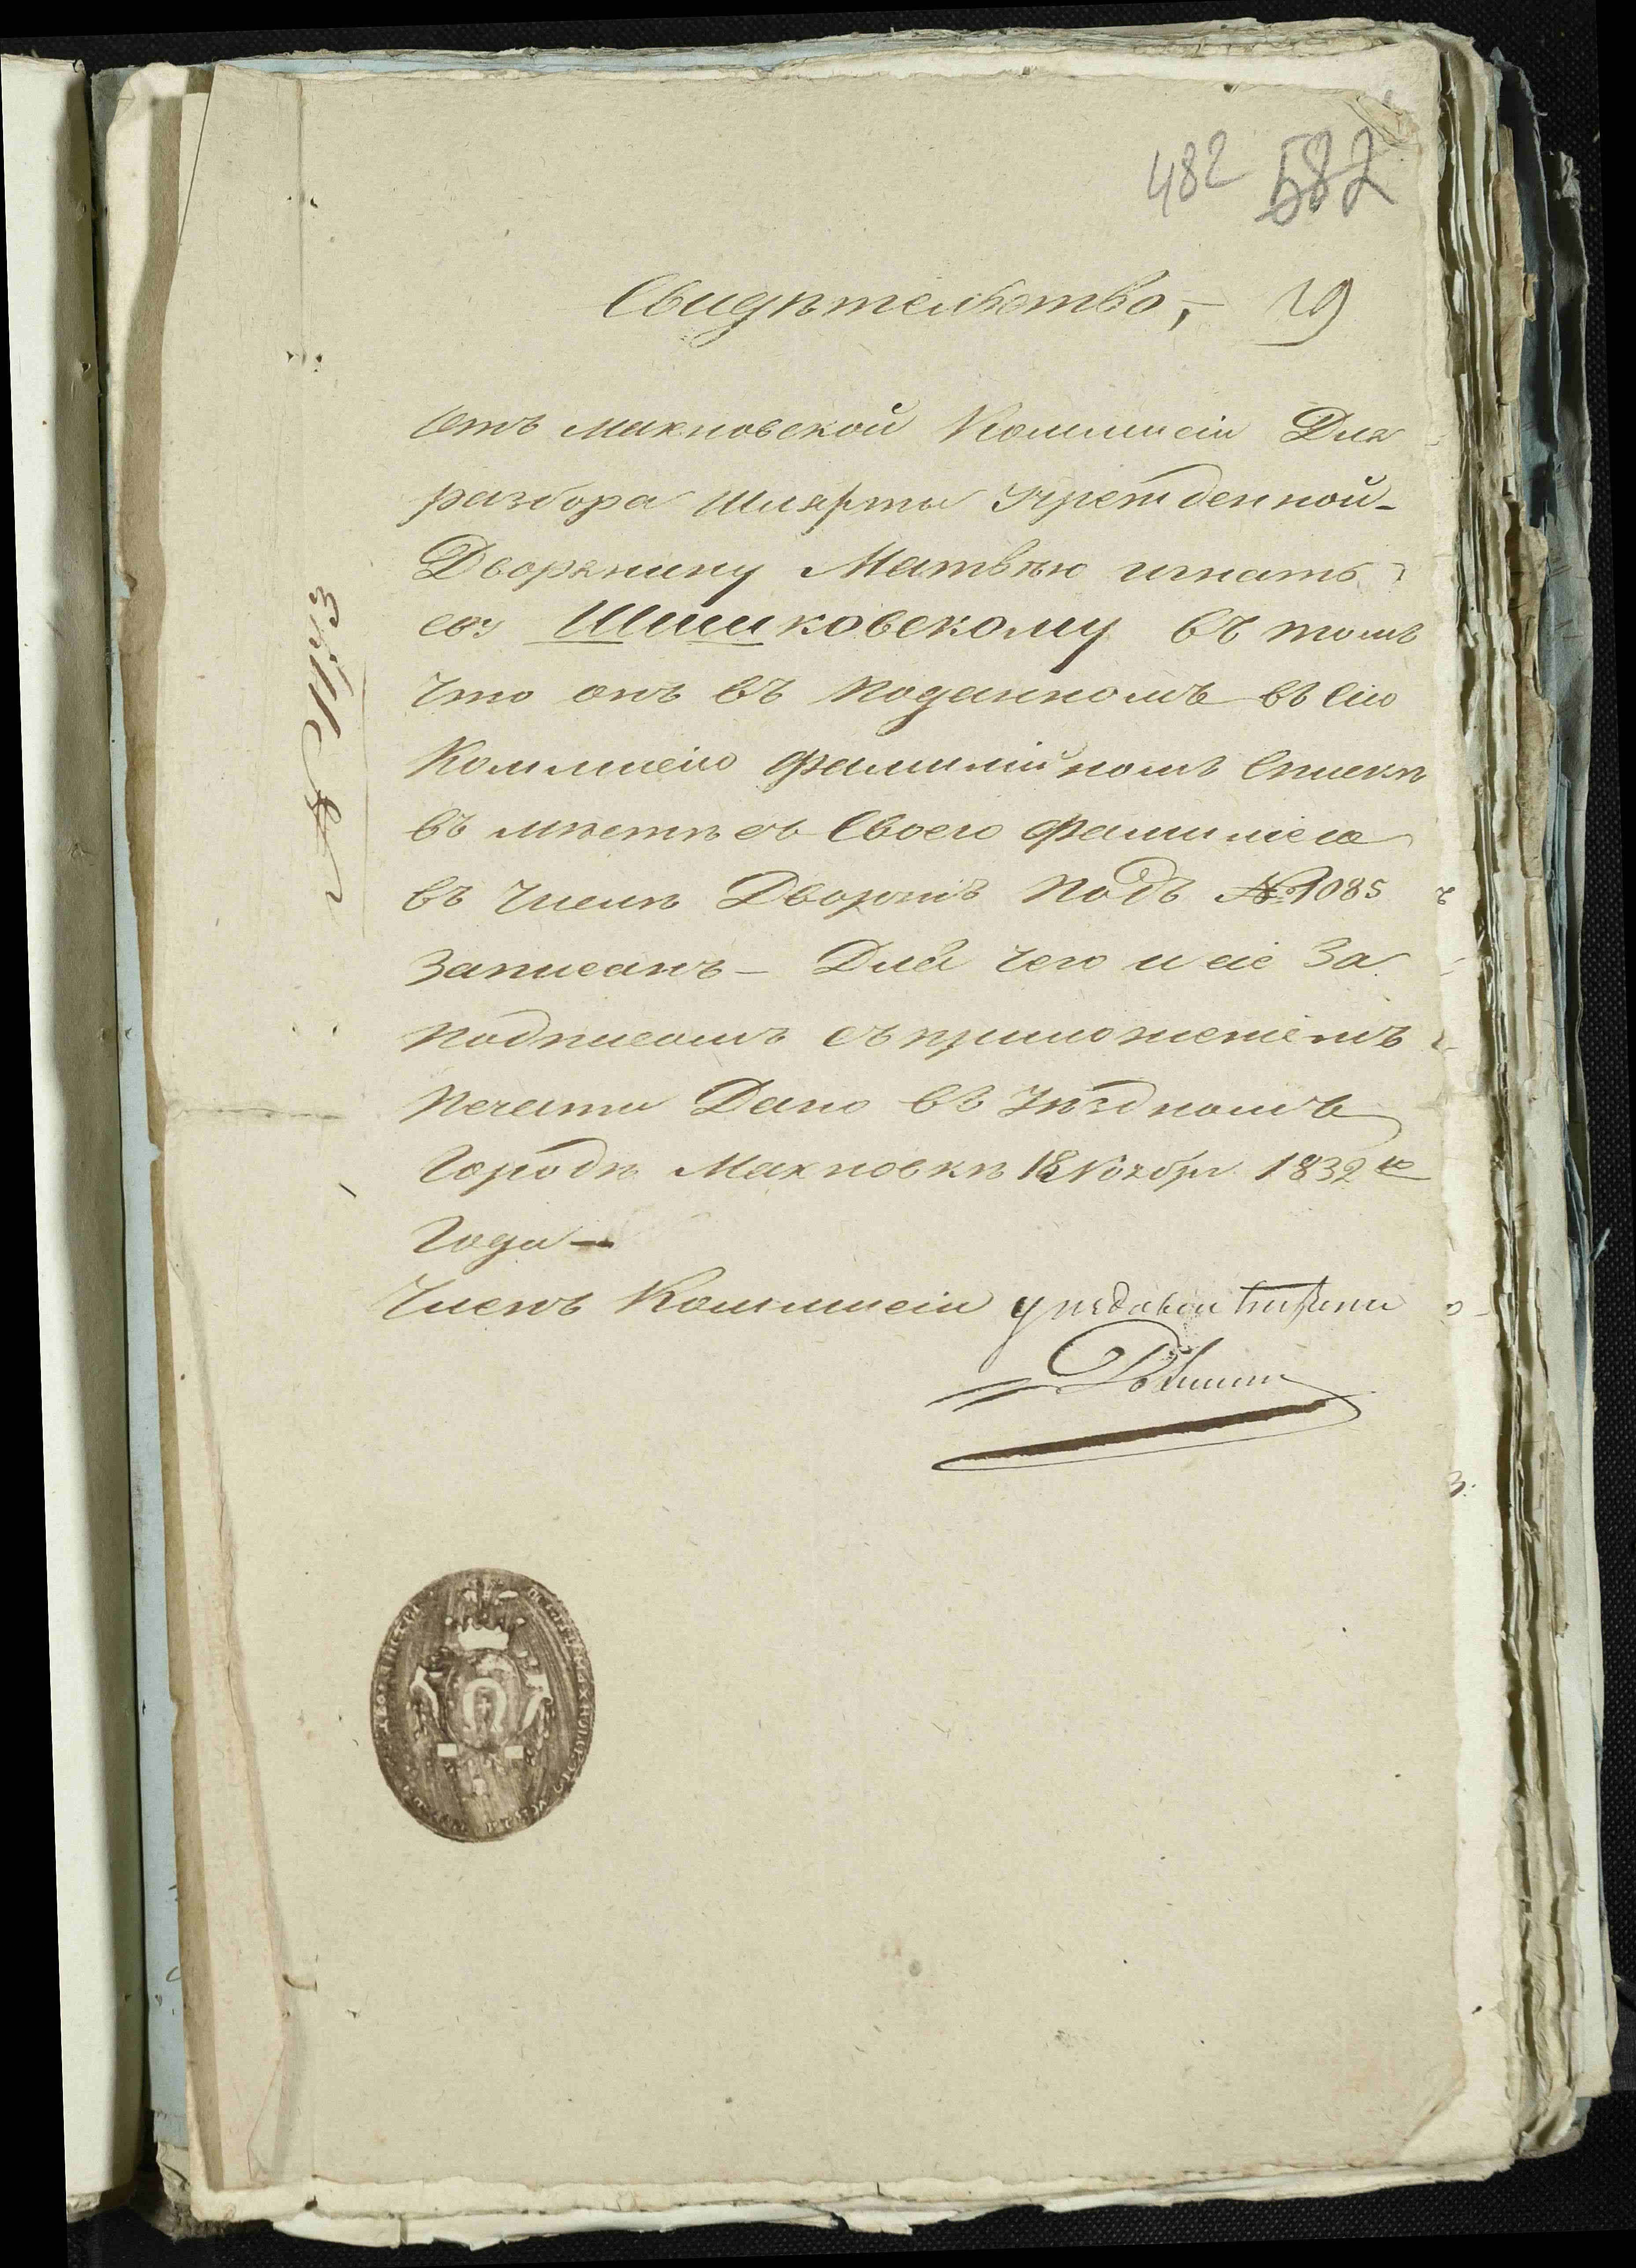 482 582
Свидѣтельство,- 19
Отъ Махновской Коммисіи Для
разбора Шляхты Учрежденной-
Дворянину Матвѣю игнать
еву Шишковскому въ томъ
что онъ въ поданномъ въ Сію
Коммисію Фамилійномъ Спискѣ
въ мѣстѣ съ Своею Фамиліею
въ числѣ Дворянъ подъ № 1085
Записанъ - Для чего и сіе За
подписомъ съ приложеніемъ
печати Дано въ Уѣздномъ
Городѣ Махновкѣ 18 Ноября 1832 го
Года -
Членъ Коммисіи
№ 1153